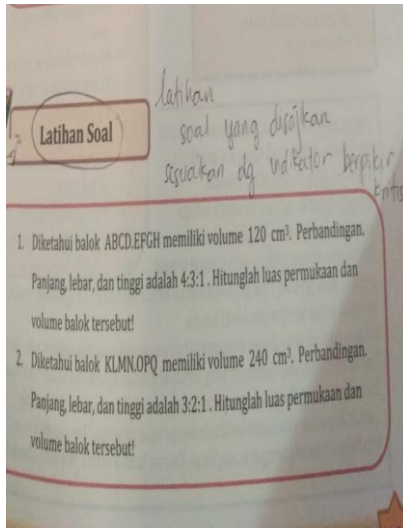 Latihan Soal
latihan
soal yang disajikan
sesuaikan dg indikator berpikir
kritis
1. Diketahui balok ABCD.EFGH memiliki volume 120 cm³. Perbandingan.
Panjang, lebar, dan tinggi adalah 4:3:1 . Hitunglah luas permukaan dan
volume balok tersebut!
2. Diketahui balok KLMN.OPQ memiliki volume 240 cm³. Perbandingan.
Panjang, lebar, dan tinggi adalah 3:2:1 . Hitunglah luas permukaan dan
volume balok tersebut!